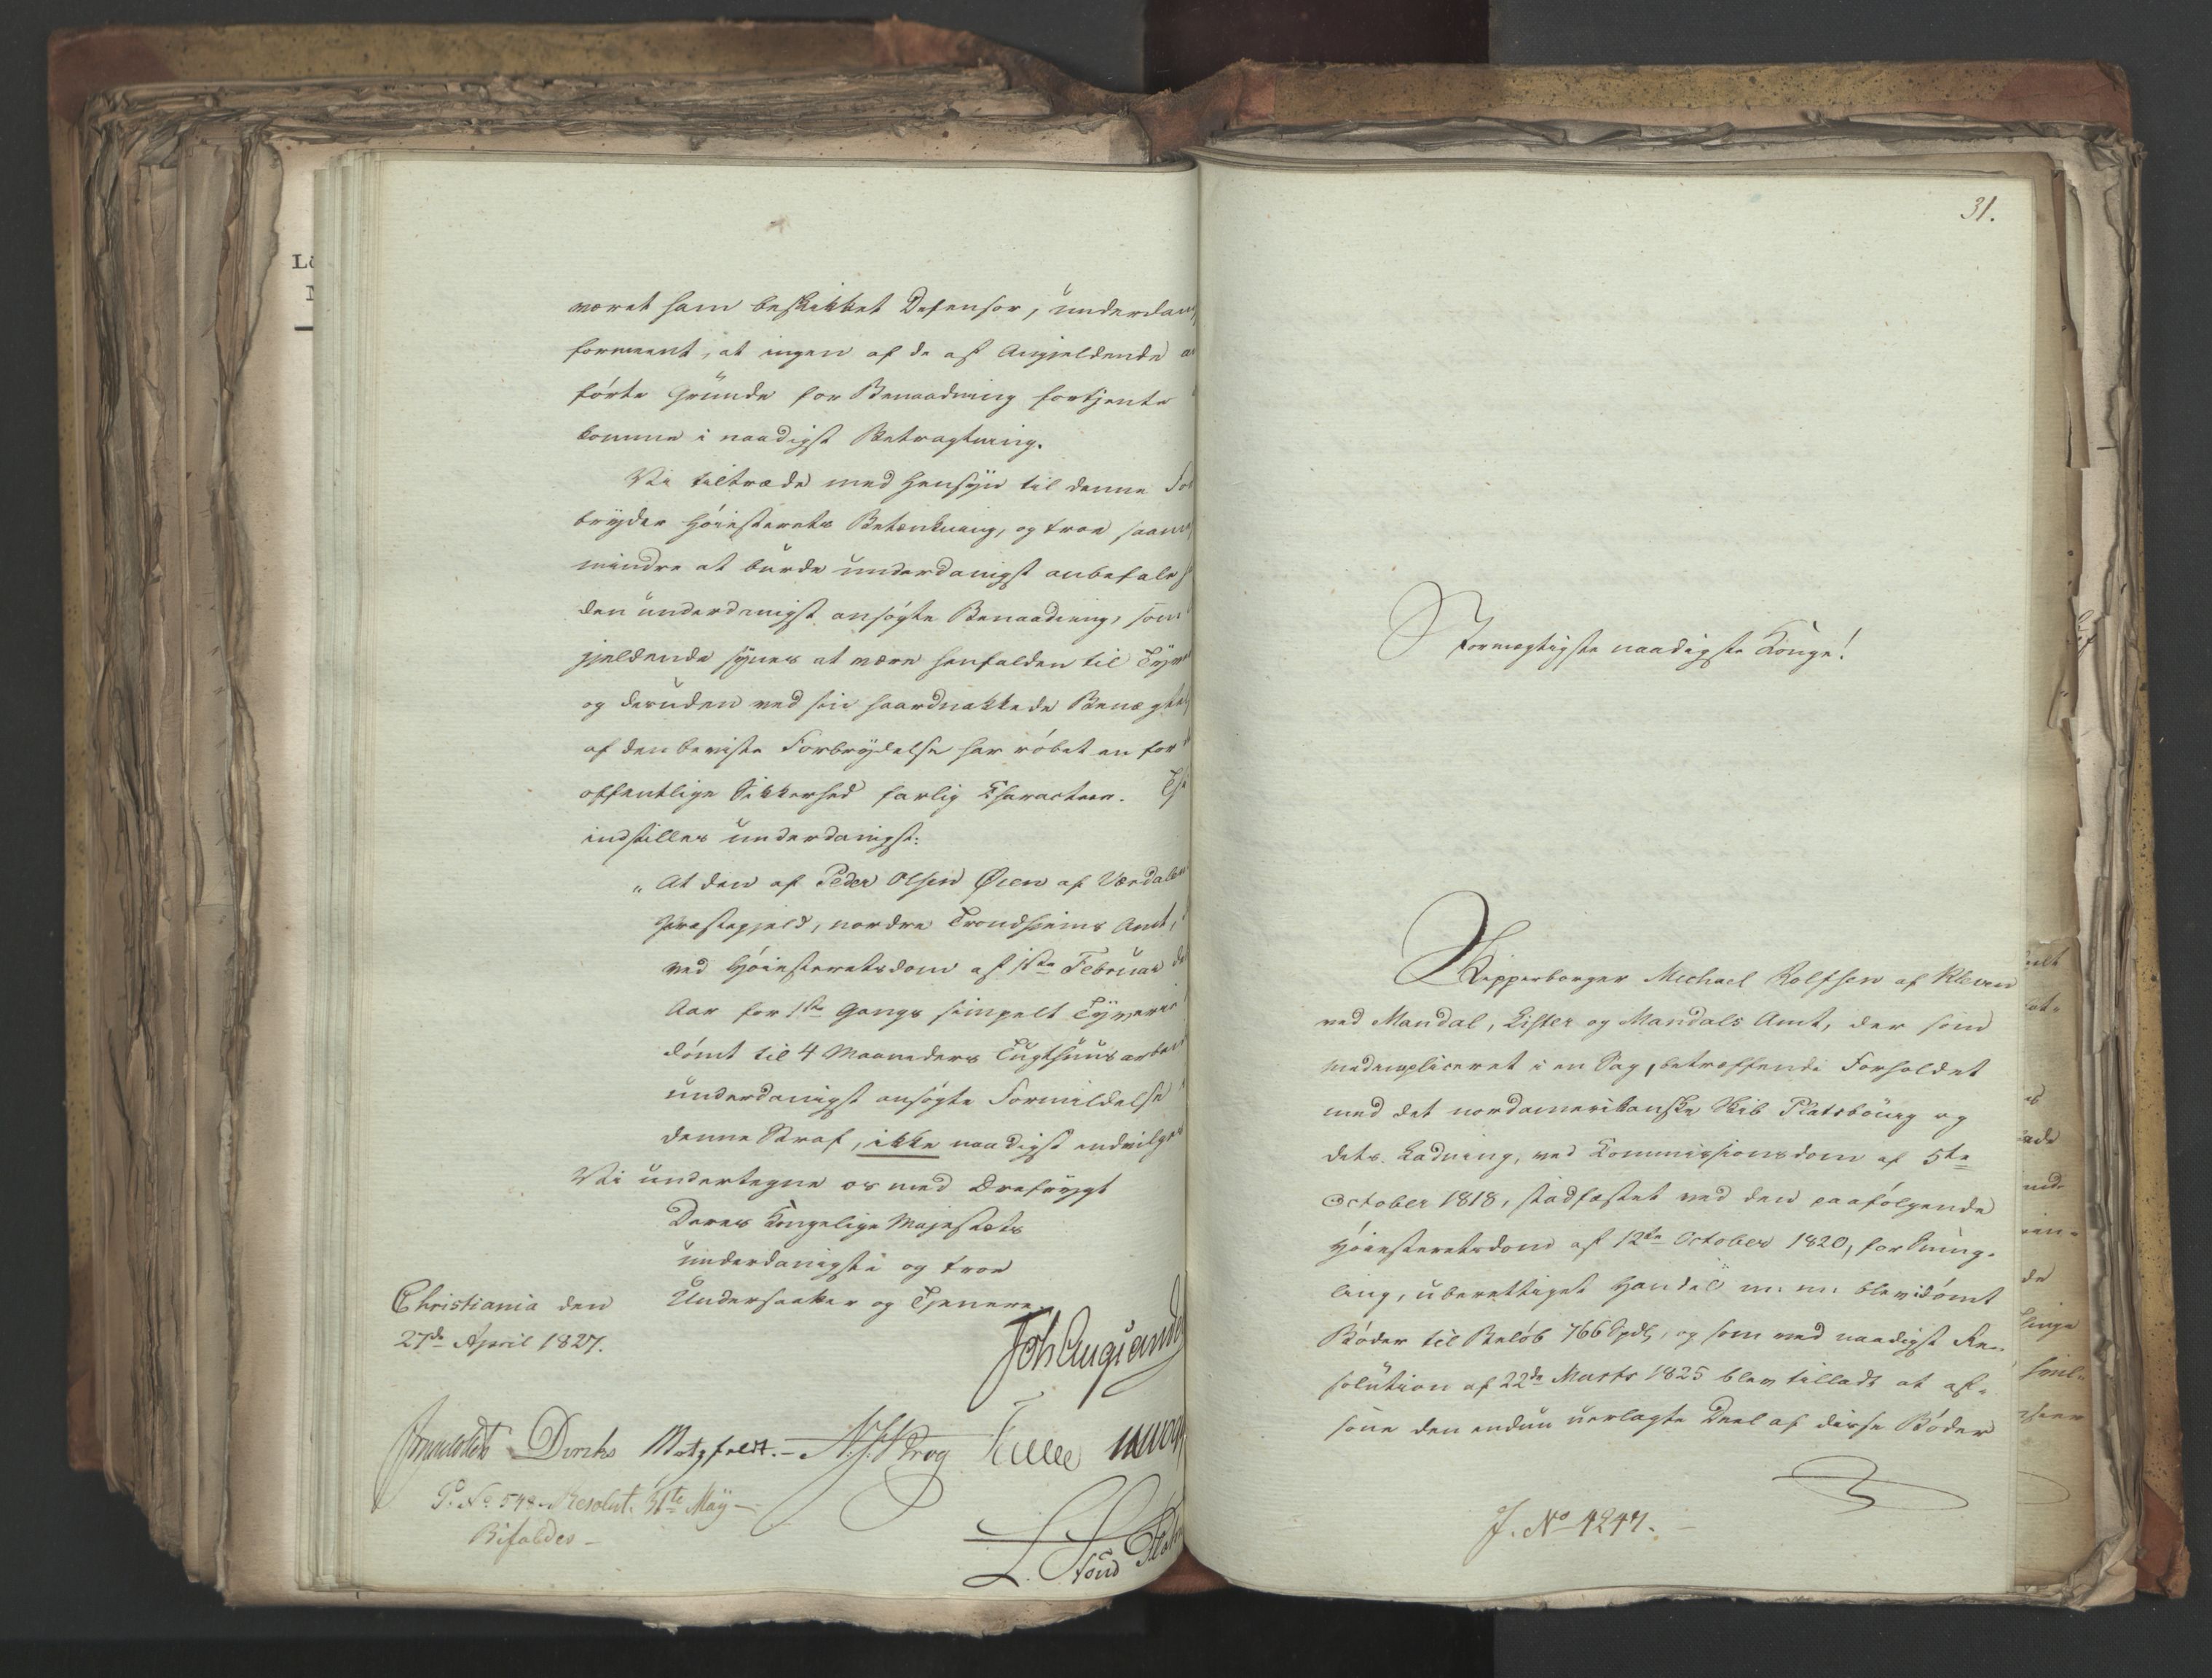 været ham beskikket Defensor, underdan
formeent, at ingen af de af Angjeldende a
førte Grunde for Benaadning fortjente
komme i naadigst Betragtning.
Vi tiltræde med Hensyn til denne For
bryder Høiesterets Betænkning, og troe saam
mindre at burde underdanigst anbefale
den underdanigst ansøgte Benaadning, som
gjeldende synes at være henfalden til Tyve
og desuden ved sin haardnakkede Benægtel
af den beviste Forbrydelse har røbet en for
offentlige Sikkerhed farlig Charakteer. Thi
indstilles underdanigst:
„At den af Peder Olsen Øien af Værdalen
Præstegjeld, nordre Trondhjems Amt,
ved Høiesteretsdom af 1ste Februar d
Aar for 1ste Gangs simpelt Tyverie
dømt til 4 Maaneders Tugthuusarbei
underdanigst ansøgte Formildelse
denne Straf, ikke naadigst indvilges
Vi undertegne os med Ærefrygt
Deres Kongelige Majestæts
underdanigste og troe
Undersaatter og Tjenere.
Christiania den
27de April 1827.
Diriks Motzfeldt. Krog
P. No 548. Resolut. 31te May
Bifaldes
31.
Stormægtigste naadigste Konge!
Skipperborger Michael Rolfsen af Kleven
ved Mandal, Lister og Mandals Amt, der som
medimpliceret i en Sag, betreffende Forholdet
med det nordamerikanske Skib Platsbourg og
dets Ladning, ved Kommissionsdom af 5te
October 1818, stadfæstet ved den paafølgende
Høiesteretsdom af 12te October 1820, for Smug-
ling, uberettiget Handel m: m: blev idømt
Bøder til Beløb 766 Spdlr, og som ved naadigst Re-
solution af 22de Marts 1825 blev tilladt at af-
sone den endnu uerlagte Deel af disse Bøder
J. No 4247.